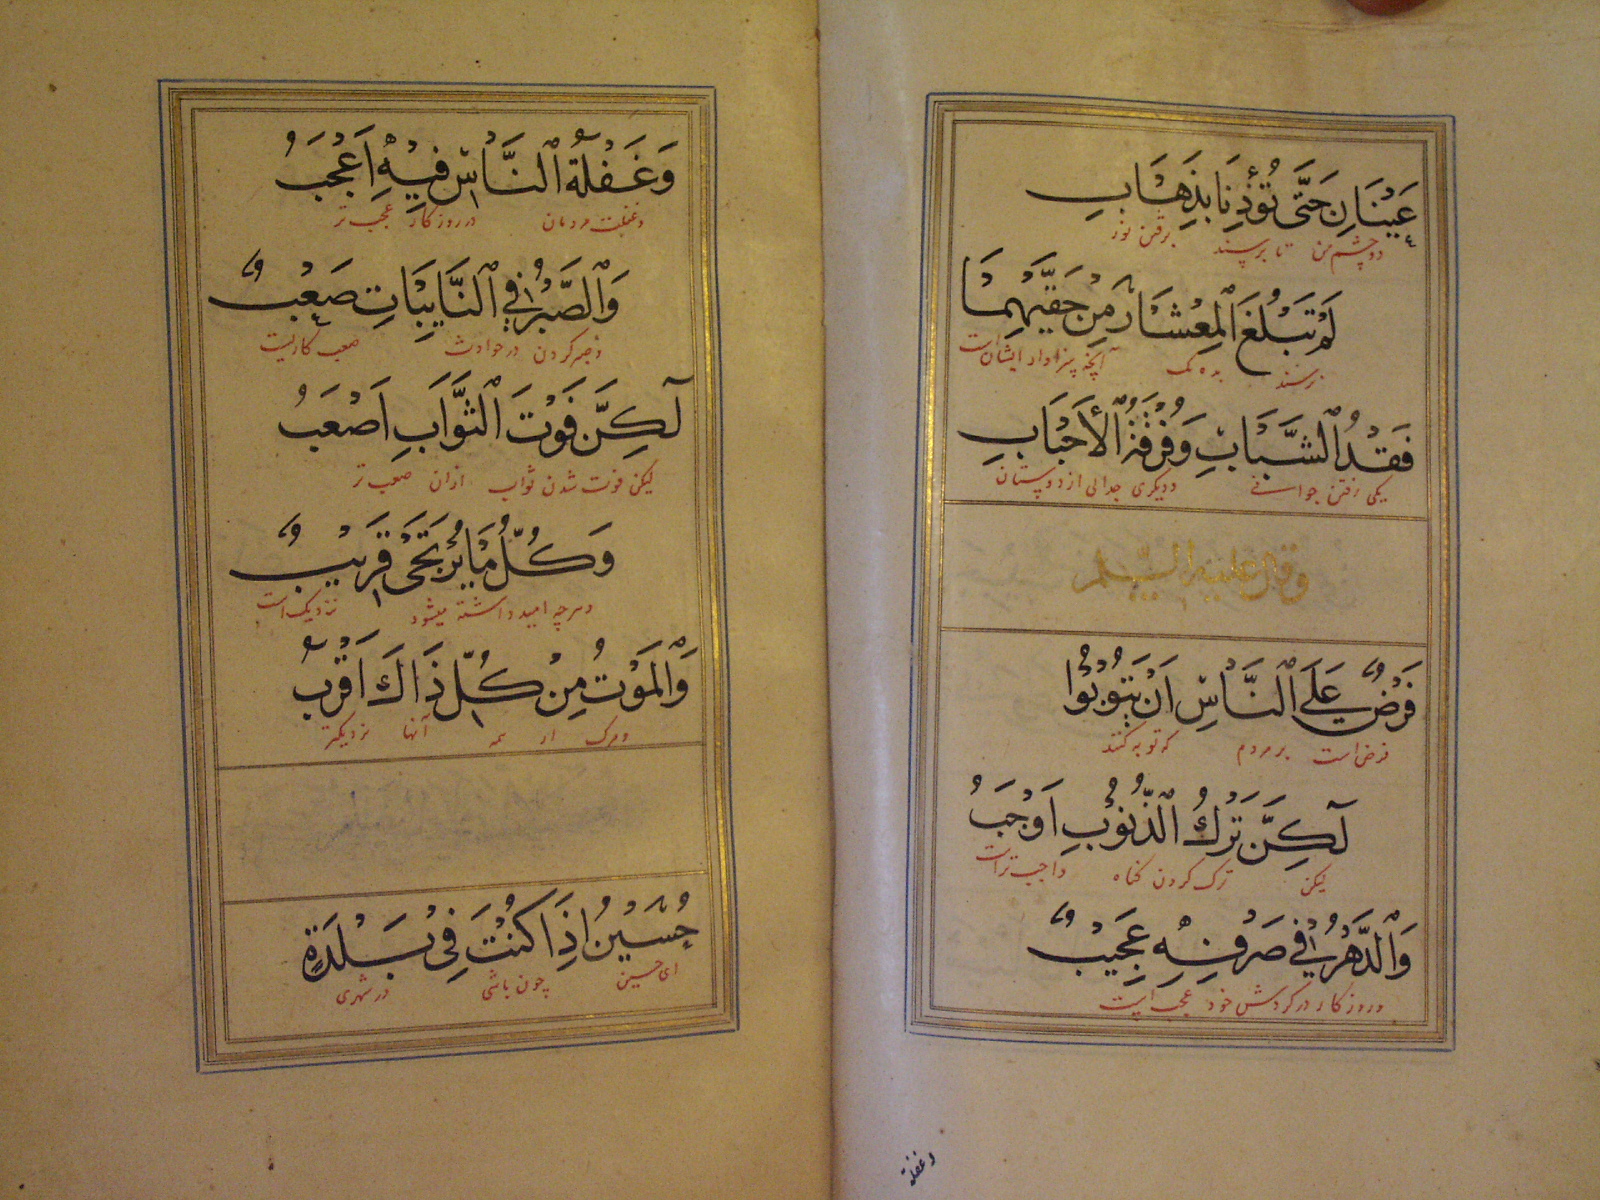 عَيْنَانِ حَتَّى تُؤْذِنَا بِذِهَابِ
دو چشم من تا برسند برفتن نور
لَمْ تَبْلُغَ الْمِعْشَارَ مِنْ حَقَّيْهِمَا
نرسند بده یک آنچه سزاوار ایشان است
فَقْدُ الشَّبَابِ وَفُرْقَةُ الْأَحْبَابِ
یکی رفتن جوانی و دیگری جدایی از دوستان
وقال علیه السلم
فَرْضٌ عَلَى النَّاسِ اَنْ يَتُوْبُوْا
فرض است بر مردم که توبه کنند
لَكِنَّ تَرْكَ الذُّنُوْبِ اَوْجَبُ
لیکن ترک کردن گناه واجب تر است
وَالدَّهْرُ فِي صَرْفِهِ عَجِيْبٌ
و روزگار در گردش خود عجب است
وغفلة
وَغَفْلَةُ النَّاسِ فِيْهِ اَعْجَبُ
وغفلت مردمان در روزگار عجب تر
وَالصَّبْرُ فِي النَّايِبَاتِ صَعْبٌ
و صبر کردن در حوادث صعب کاریست
لَكِنَّ فَوْتَ الثَّوَابِ اَصْعَبُ
لیکن فوت شدن ثواب ازان صعب تر
وَكُلُّ مَا يُرْتَجَى قَرِيْبٌ
و هرچه امید داشته میشود نزدیک است
وَالْمَوْتُ مِنْ كُلِّ ذَاكَ اَقْرَبُ
و مرگ از همه آنها نزدیکتر
حُسَيْنُ اِذَا كُنْتَ فِي بَلْدَةٍ
ای حسین چون باشی در شهری